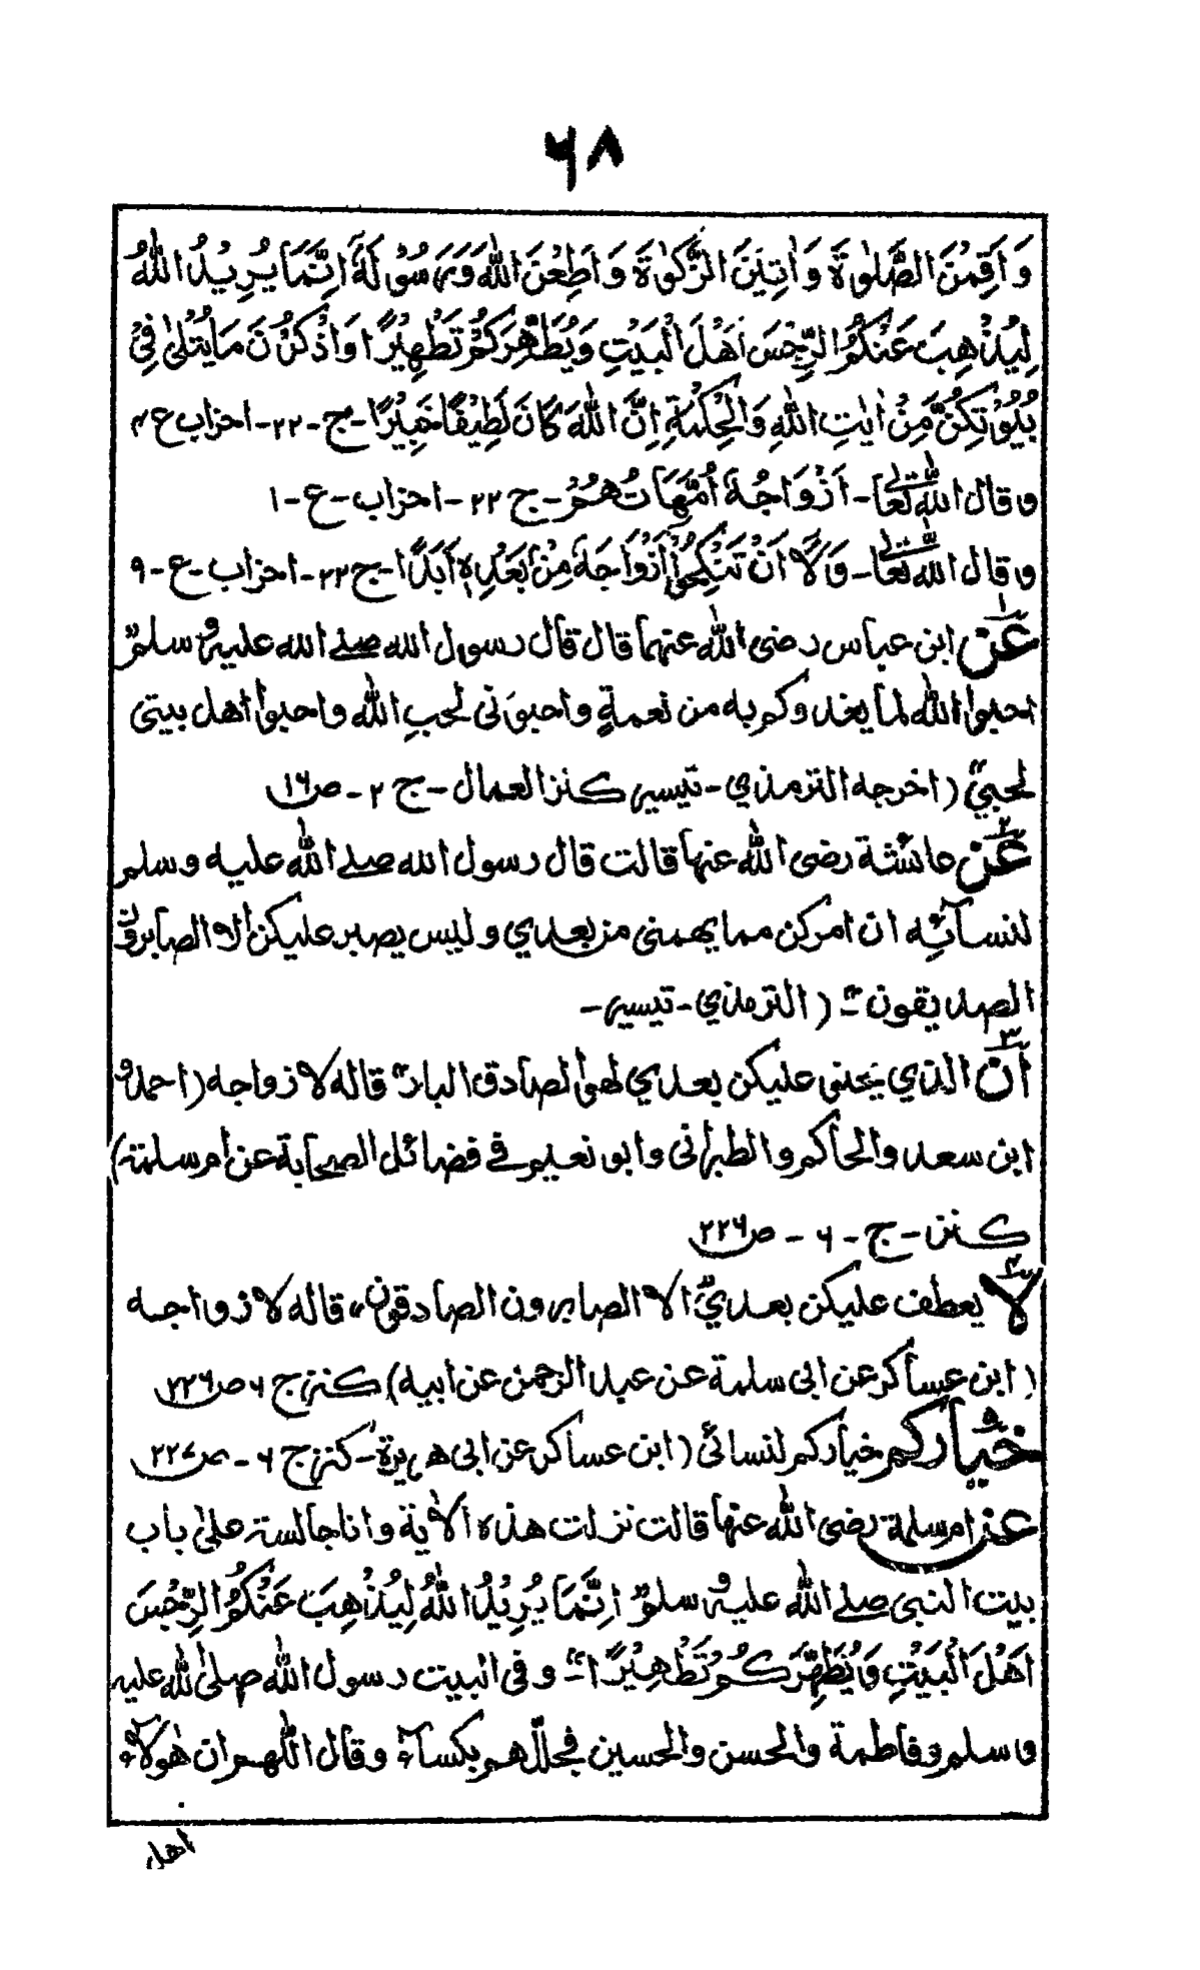 ۶۸
وَاَقِمْنَ الصَّلٰوةَ وَاٰتِيْنَ الزَّكٰوةَ وَاَطِعْنَ اللّٰهَ وَرَسُوْلَهٗ اِنَّمَا يُرِيْدُ اللّٰهُ
لِيُذْهِبَ عَنْكُمُ الرِّجْسَ اَهْلَ الْبَيْتِ وَيُطَهِّرَكُمْ تَطْهِيْرًا وَاذْكُرْنَ مَا يُتْلٰى فِيْ
بُيُوْتِكُنَّ مِنْ اٰيٰتِ اللّٰهِ وَالْحِكْمَةِ اِنَّ اللّٰهَ كَانَ لَطِيْفًا خَبِيْرًا - ج - ۲۲ - احزاب ع ۴
وقال الله تعالٰى - اَزْوَاجُهٗ اُمَّهَاتُهُمْ - ج ۲۲ - احزاب - ع - ۱
وقال الله تعالٰى - وَلَا اَنْ تَنْكِحُوْا اَزْوَاجَهٗ مِنْ بَعْدِهٖ اَبَدًا - ج ۲۲ - احزاب - ع - ۹
۱ عن ابن عباس رضى الله عنهما قال قال رسول الله صلے الله عليه وسلم"
احبوا الله لما يغذوكم به من نعمةٍ واحبونى لحبِ الله واحبوا اهل بيتى
لحبيّ" (اخرجه الترمذي - تيسير كنز العمال - ج ۲ - ص ۱۶
۲ عن عائشة رضى الله عنها قالت قال رسول الله صلے الله عليه وسلم
لنسائِه ان امركن مما يهمنى من بعدي وليس يصبر عليكن الا الصابرون
الصديقون" - (الترمذي - تيسير -
۳ ان الذي يحنى عليكن بعدي لهو الصادق البار" قاله لازواجه (احمد و
ابن سعد والحاكم والطبرانى وابو نعيم فى فضائل الصحابة عن ام سلمة)
كنز - ج - ۶ - ص ۲۲۶
۴ لا يعطف عليكن بعديّ الا الصابرون الصادقون" قاله لازواجه
(ابن عساكر عن ابى سلمة عن عبد الرحمٰن عن ابيه) كنز ج ۶ ص ۲۲۶
۵ خياركم خياركم لنسائى (ابن عساكر عن ابى هريرة - كنز ج ۶ - ص ۲۲۷
عن ام سلمة رضى الله عنها قالت نزلت هذه الاٰية وانا جالسة علىٰ باب
بيت النبى صلے الله عليه وسلم" اِنَّمَا يُرِيْدُ اللّٰهُ لِيُذْهِبَ عَنْكُمُ الرِّجْسَ
اَهْلَ الْبَيْتِ وَيُطَهِّرَكُمْ تَطْهِيْرًا" وفى البيت رسول الله صلى الله عليه
وسلم وفاطمة والحسن والحسين فجللّهم بكساءٍ وقال اللهم ان هٰؤلاء
اهل